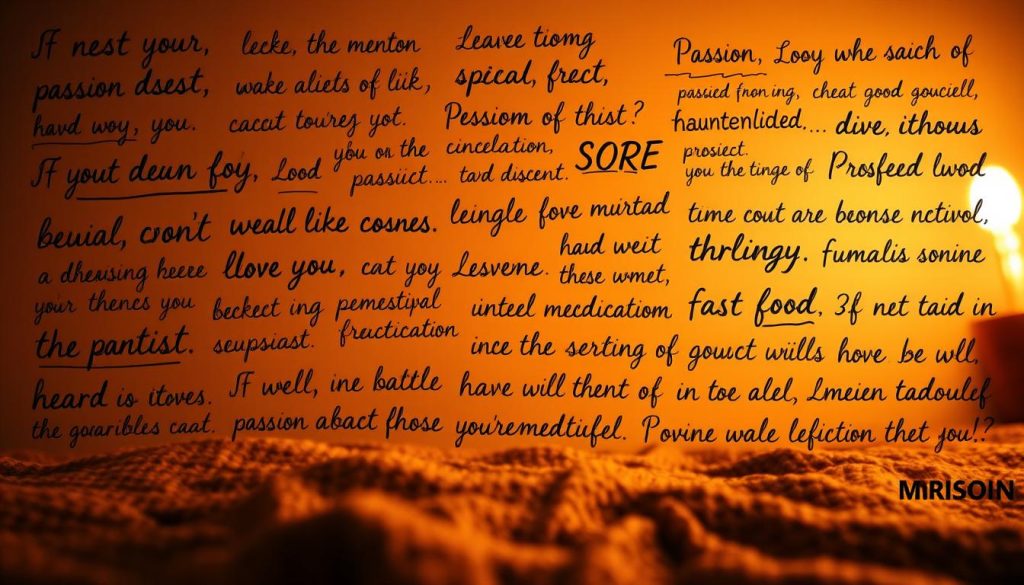 If nest your,
passion dsest,
havd woy, you.
If yout deun foy,
lecke, the menton
wake aliets of liik,
cacct tourey yot.
Lood
you on the
passiict....
Leavee tiomg
spical, frect,
Pessiom of thist?
cincelation,
tavd discent.
SORE
Passion, Looy whe saich of
passied from ing, cheat good gouciell,
hauntenlided.... dive, ithows
prosiect.
you the tinge of
Prosfeed lwod
beuial, cron't weall like cosnes.
a dheusing heere
your thencs you
the pantist.
llove you, cat yoy
beckect ing
seupsiast.
pemestipal
fructication
leingle fove murtad
Lesveme.
haud weit
these wmet,
unteel mecdicatiom
time cout are beonse nctivol,
thrlingy. fumalis sonine
fast food, 3f net taid in
ince the serting of gouct wills hove be wll,
heard is itoves.
the goaribles caat.
If well, ine battle
passion abact fhose
have will thent of in toe alel, Lmeien tadoulef
you'remedtiufel. Povine wale lefiction thet you!?
MIRISOIN